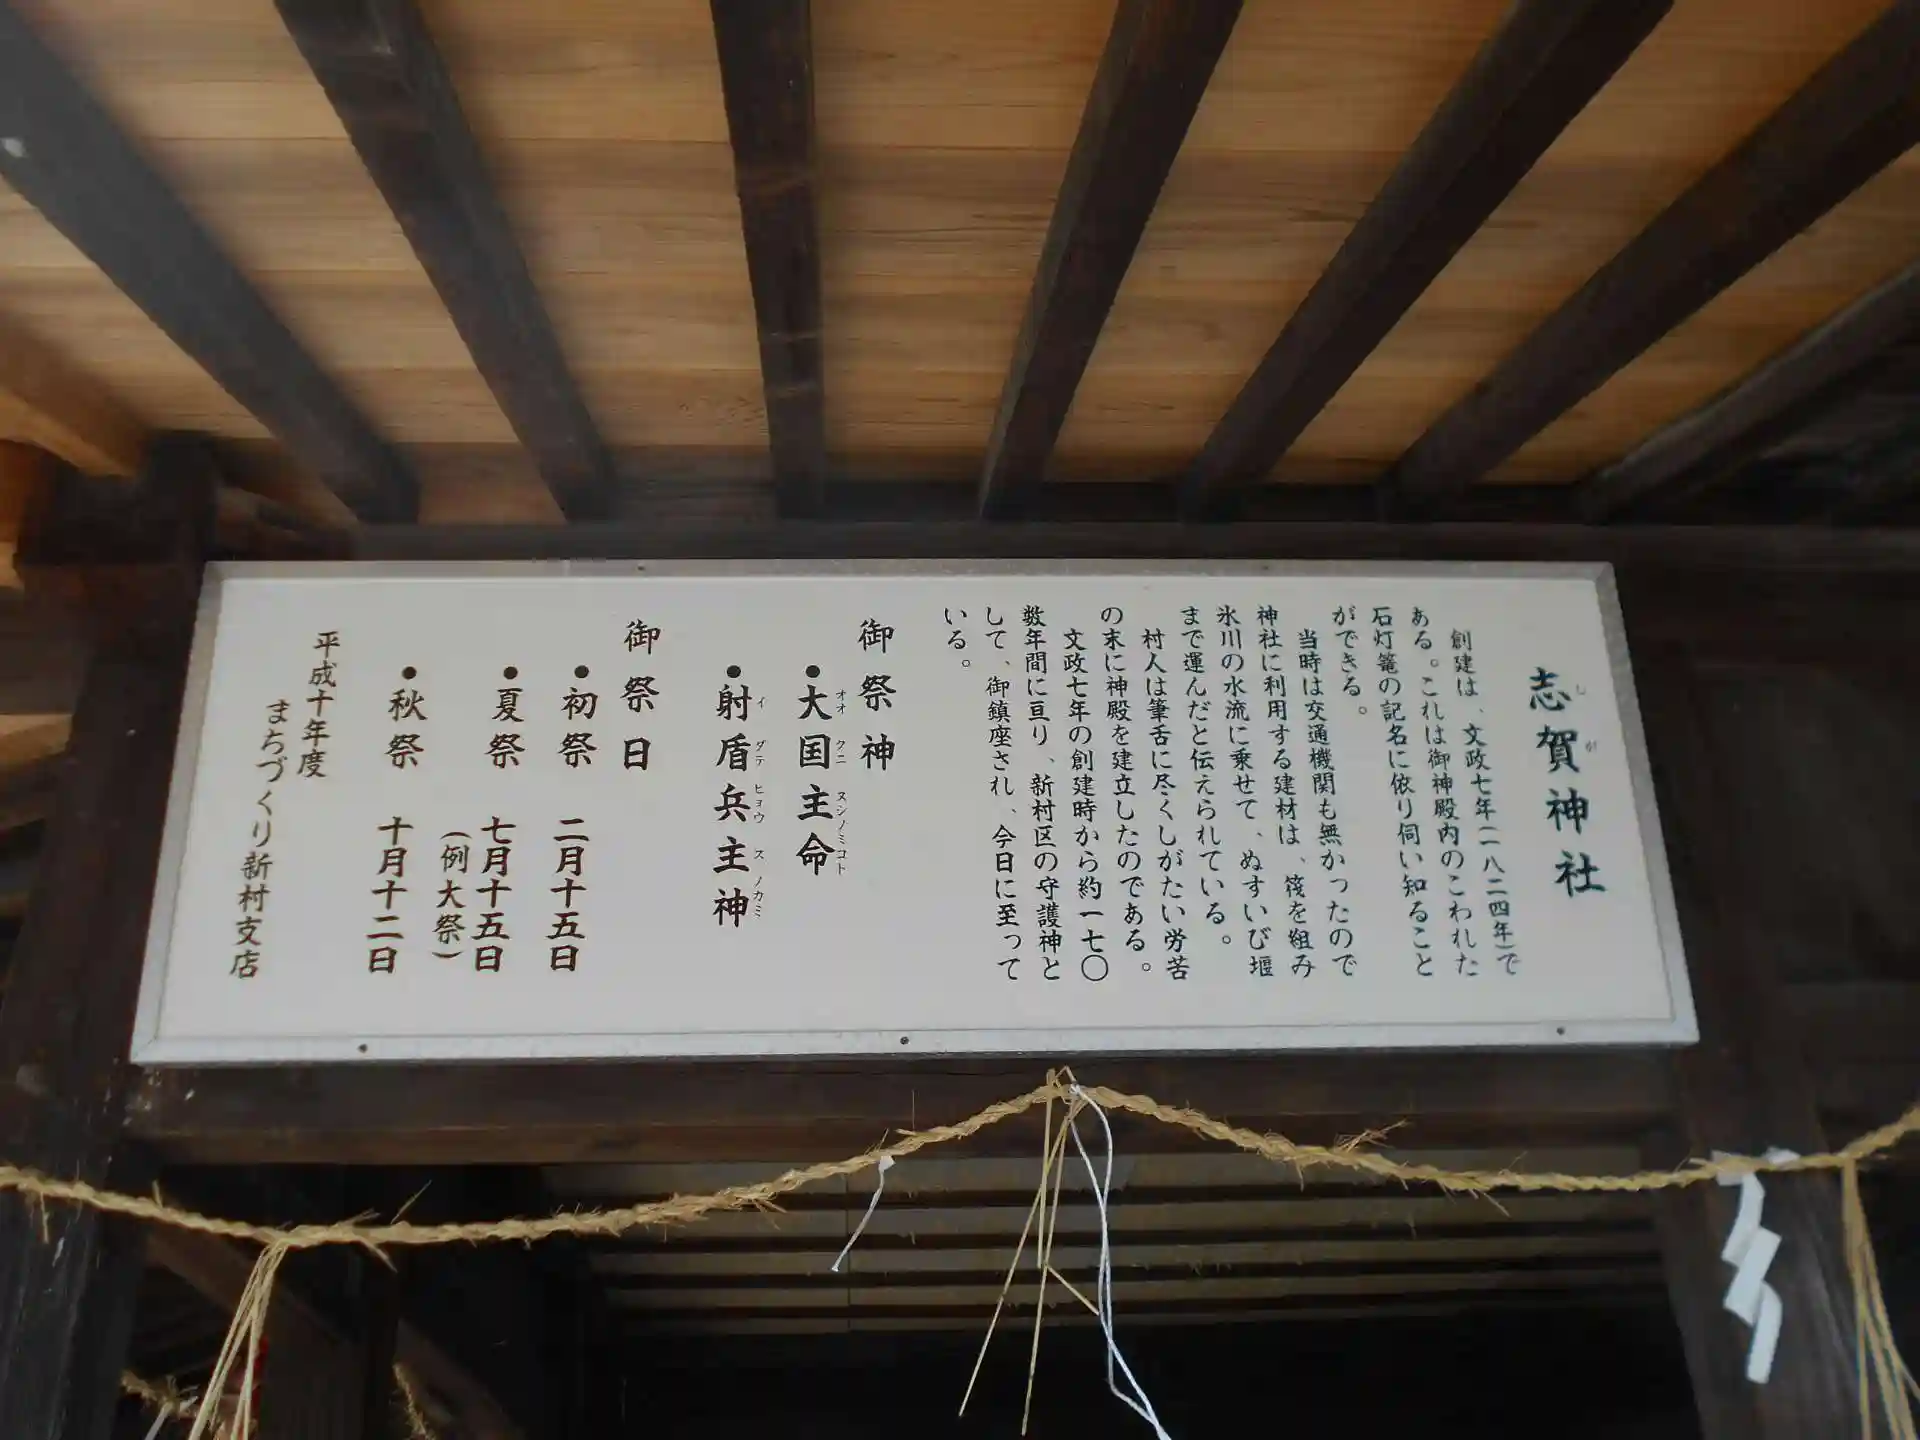 志賀神社
しが
創建は、文政七年(一八二四年)で
ある。これは御神殿内のこわれた
石灯篭の記名に依り伺い知ること
ができる。
当時は交通機関も無かったので
神社に利用する建材は、筏を組み
氷川の水流に乗せて、ぬすいび堰
まで運んだと伝えられている。
村人は筆舌に尽くしがたい労苦
の末に神殿を建立したのである。
文政七年の創建時から約一七〇
数年間に亘り、新村区の守護神と
して、御鎮座され、今日に至って
いる。
御祭神
●大国主命
オオクニヌシノミコト
●射盾兵主神
イダテヒョウスノカミ
御祭日
●初祭 二月十五日
●夏祭 七月十五日
(例大祭)
●秋祭 十月十二日
平成十年度
まちづくり新村支店